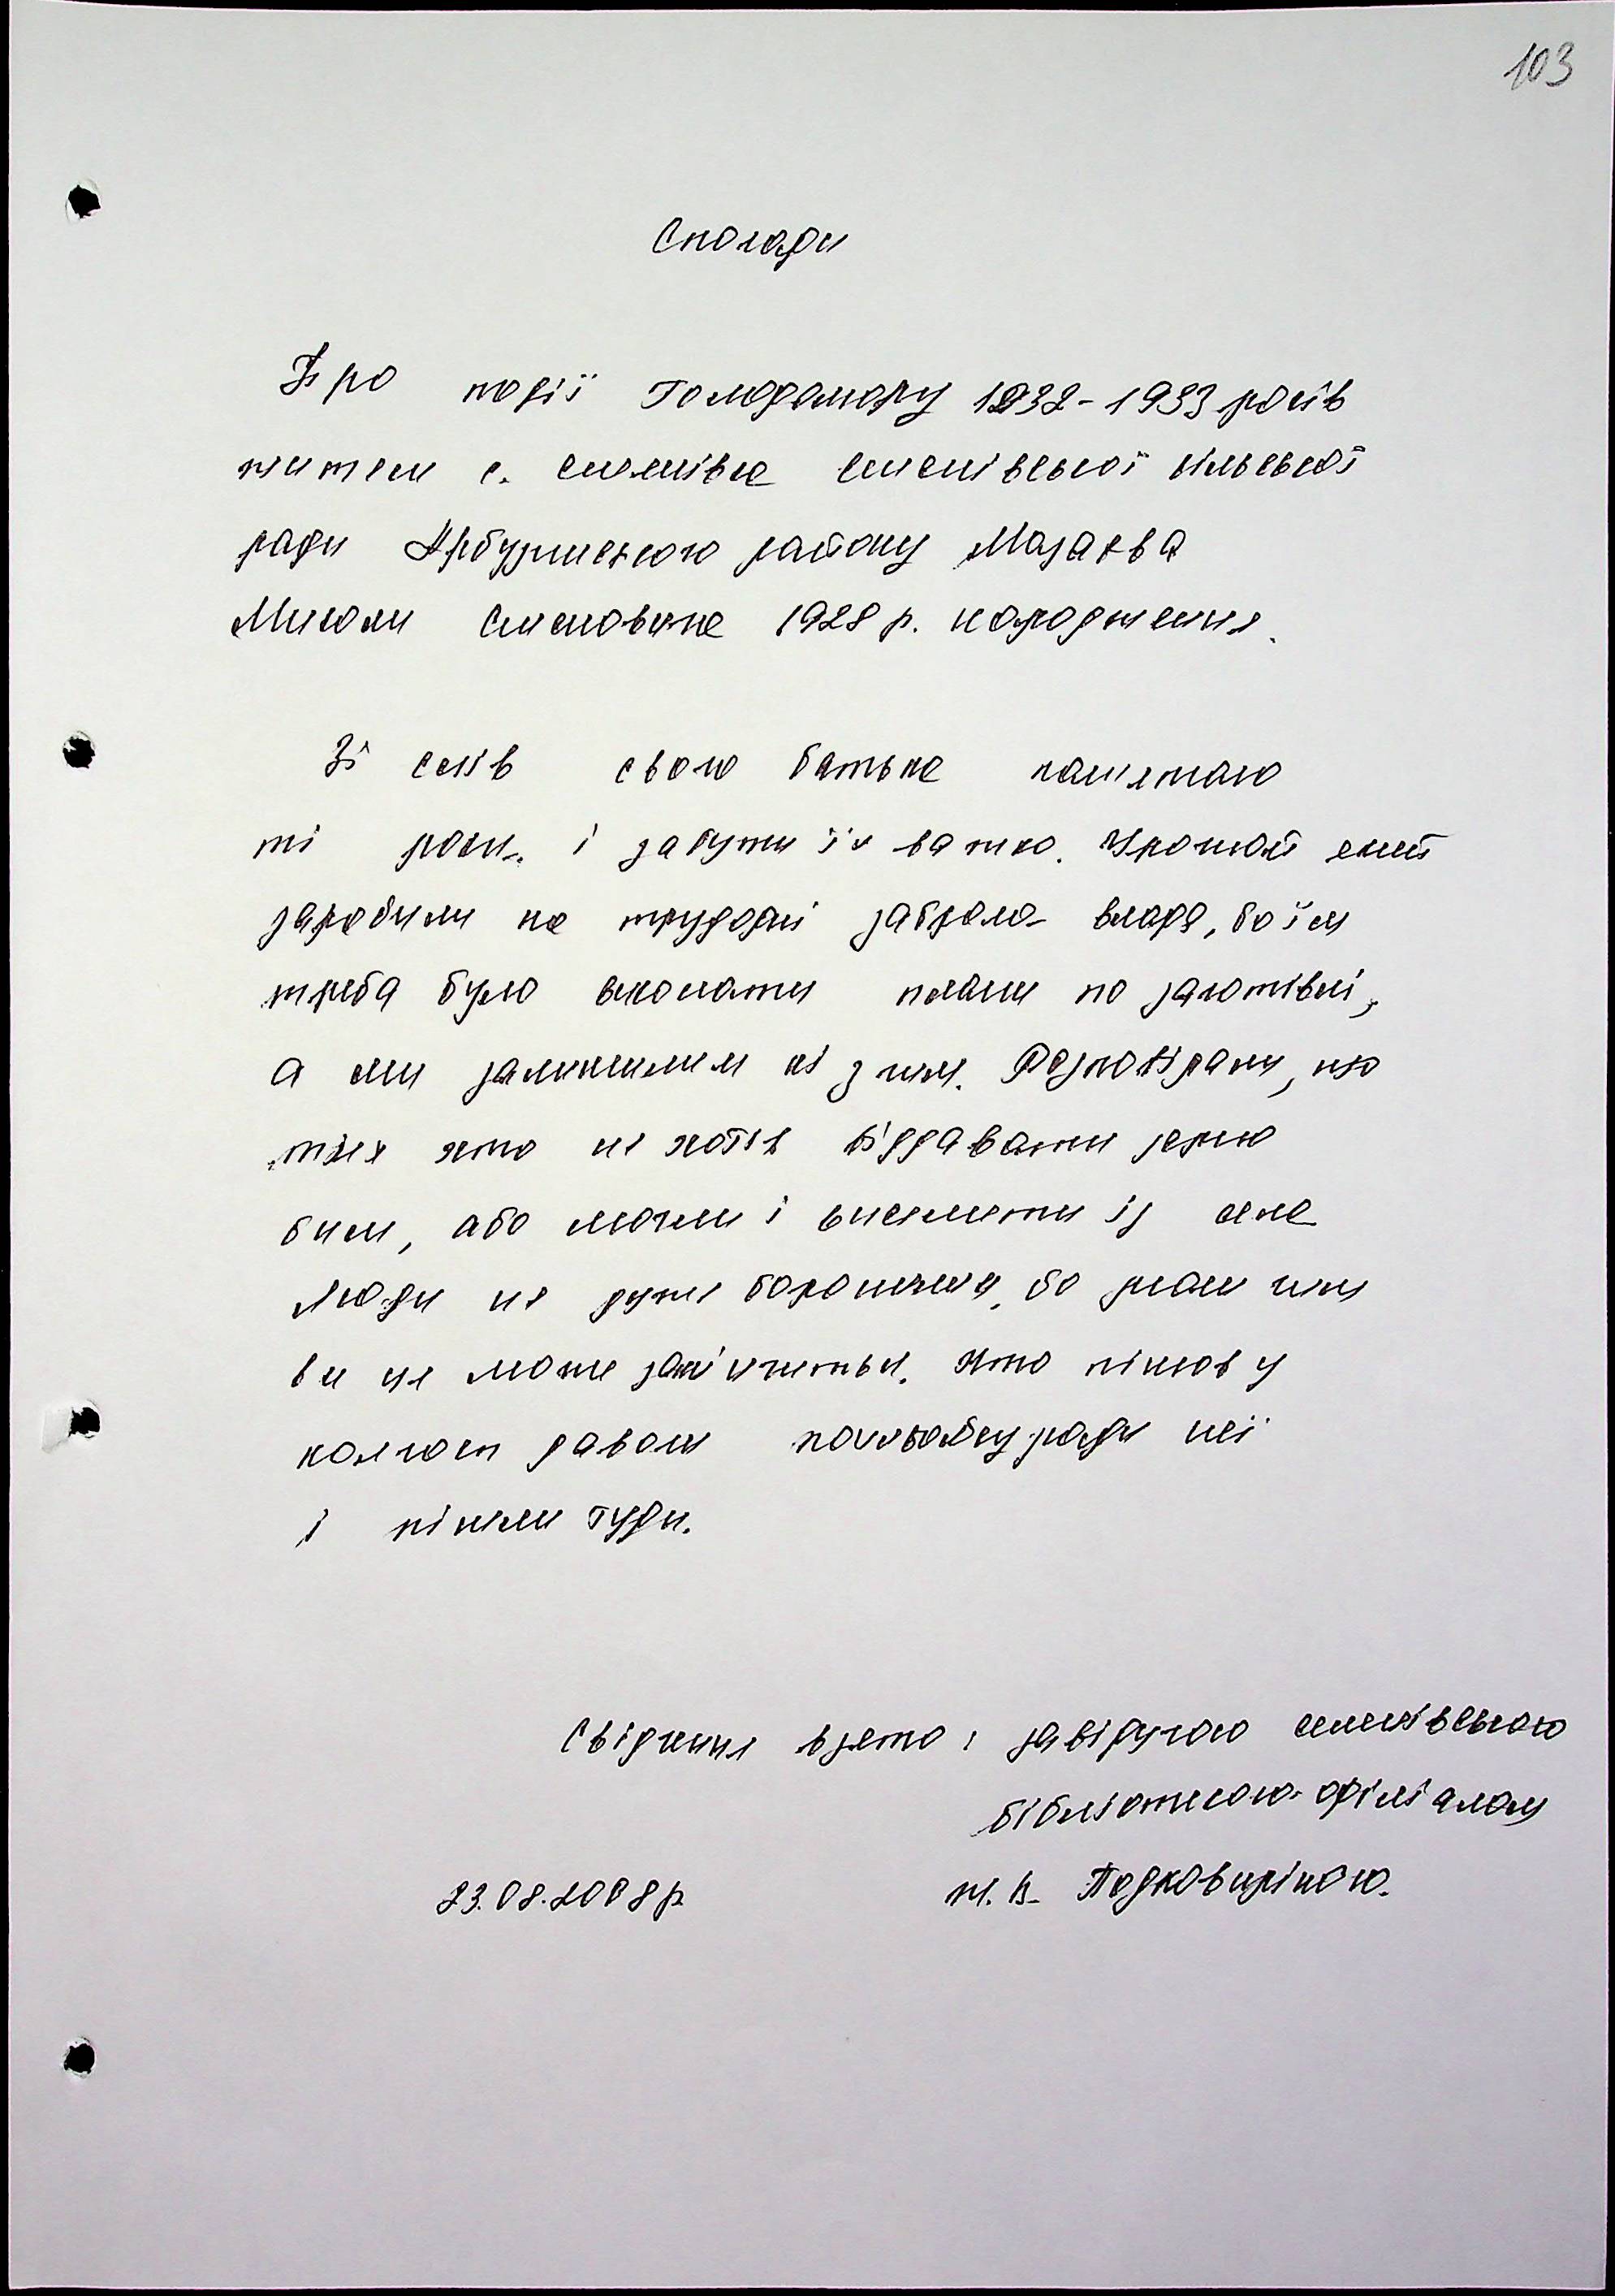 103
Спогади
Про події Голодомору 1932-1933 років
жителя с. Семенівка Семенівської сільської
ради Арбузинського району Мазаєва
Миколи Семеновича 1928 р. народження.
Зі слів свого батька пам'ятаю
ті роки, і забути їх важко. Урожай який
заробили на трудодні забрала влада, бо їм
треба було виконати плани по заготівлі,
а ми залишились ні з чим. Розповідали, що
тих хто не хотів віддавати зерно
били, або могли і виселити із села
Люди не дуже боронились, бо знали чим
все це може закінчиться. Хто пішов у
колгосп давали пайку, ради неї
і пішли туди.
Свідчення взято: завідуючою Семенівською
бібліотекою-філіалом
23.08.2008р. Ж.В. Подковиріною.